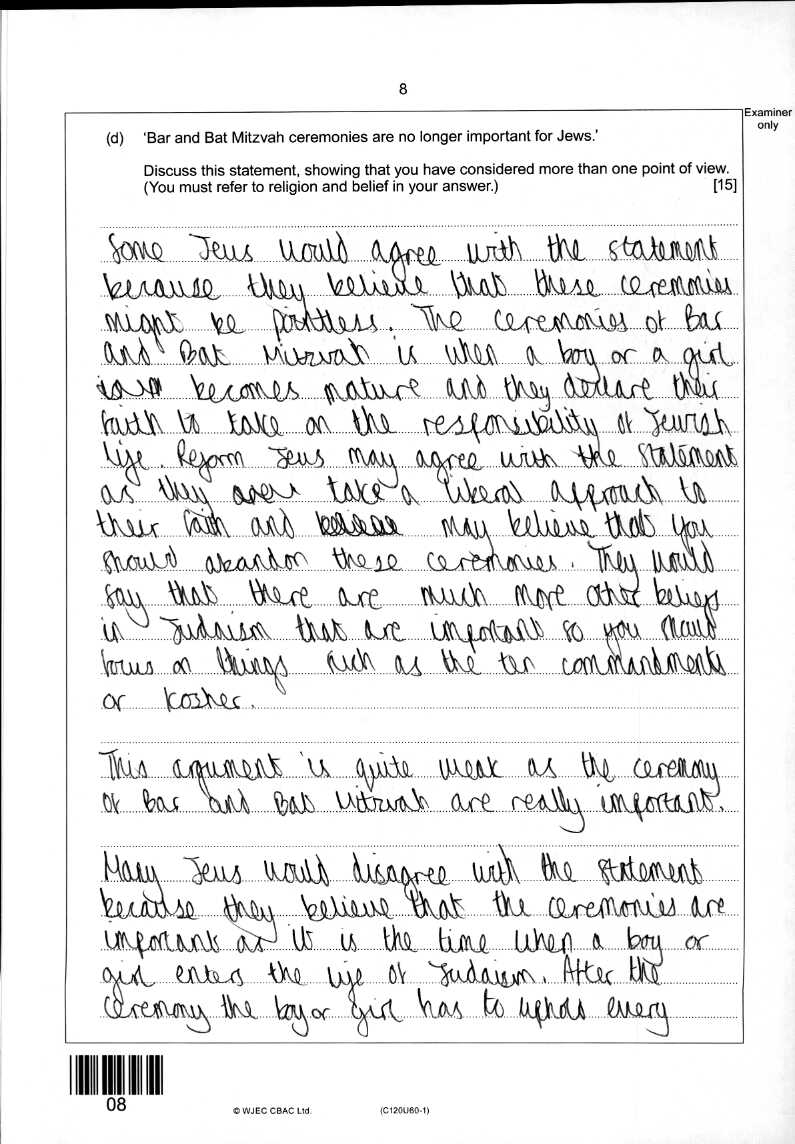 8
Examiner
only
(d) 'Bar and Bat Mitzvah ceremonies are no longer important for Jews.'
Discuss this statement, showing that you have considered more than one point of view.
(You must refer to religion and belief in your answer.) [15]
Some Jews would agree with the statement
because they believe that these ceremonies
might be pointless. The ceremonies of Bar
and Bat Mitzvah is when a boy or a girl
becomes mature and they declare their
faith to take on the responsibility of Jewish
life. Reform Jews may agree with the statement
as they take a liberal approach to
their faith and may believe that you
should abandon these ceremonies. They would
say that there are much more other beliefs
in Judaism that are important so you should
focus on things such as the ten commandments
or kosher.
This argument is quite weak as the ceremony
of Bar and Bat Mitzvah are really important.
Many Jews would disagree with the statement
because they believe that the ceremonies are
important as it is the time when a boy or
girl enters the life of Judaism. After the
ceremony the boy or girl has to uphold every
08
© WJEC CBAC Ltd.
(C120U60-1)